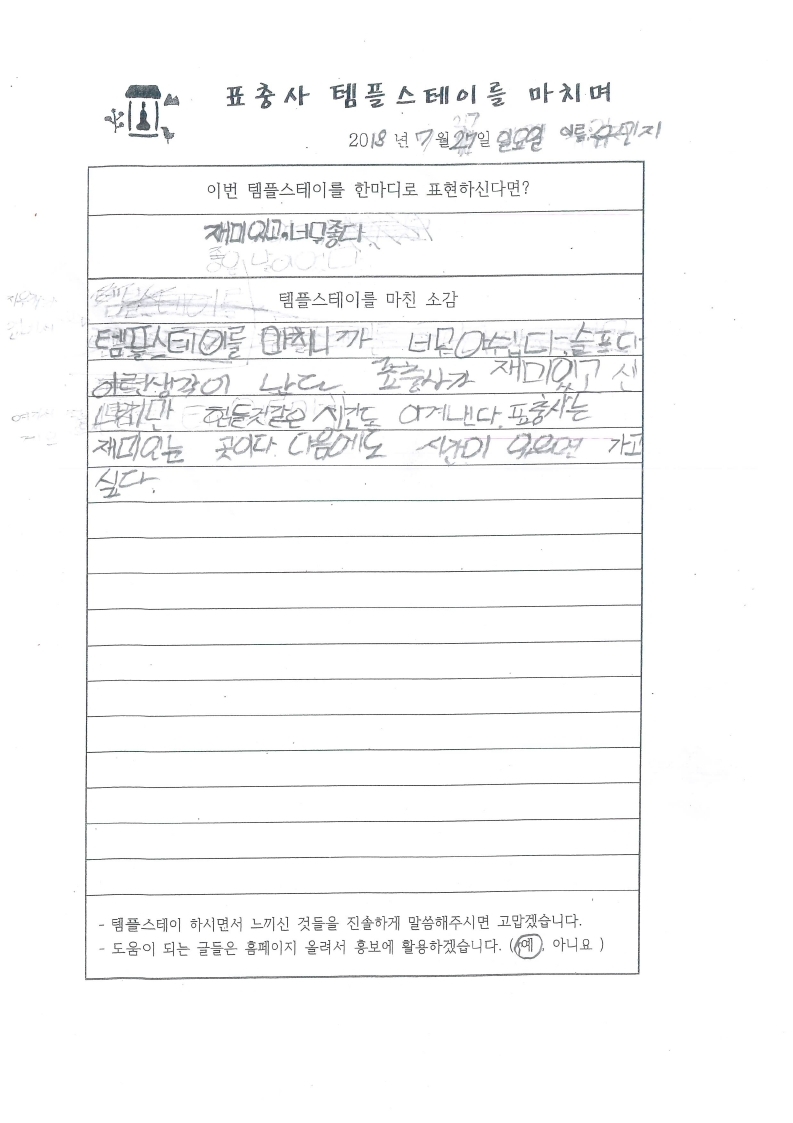 표충사 템플스테이를 마치며
2018년 7월 27일 일요일 이름
이번 템플스테이를 한마디로 표현하신다면?
재미있고, 너무좋다
템플스테이를 마친 소감
템플스테이를 마치니까 너무아쉽다, 슬프다
이런생각이 난다. 표충사가 재미있고 신
힘들것같은 시간도 이겨낸다. 표충사는
재미있는 곳이다. 다음에도 시간이 있으면 가고
싶다.
- 템플스테이 하시면서 느끼신 것들을 진솔하게 말씀해주시면 고맙겠습니다.
- 도움이 되는 글들은 홈페이지 올려서 홍보에 활용하겠습니다. ( 예 , 아니요 )